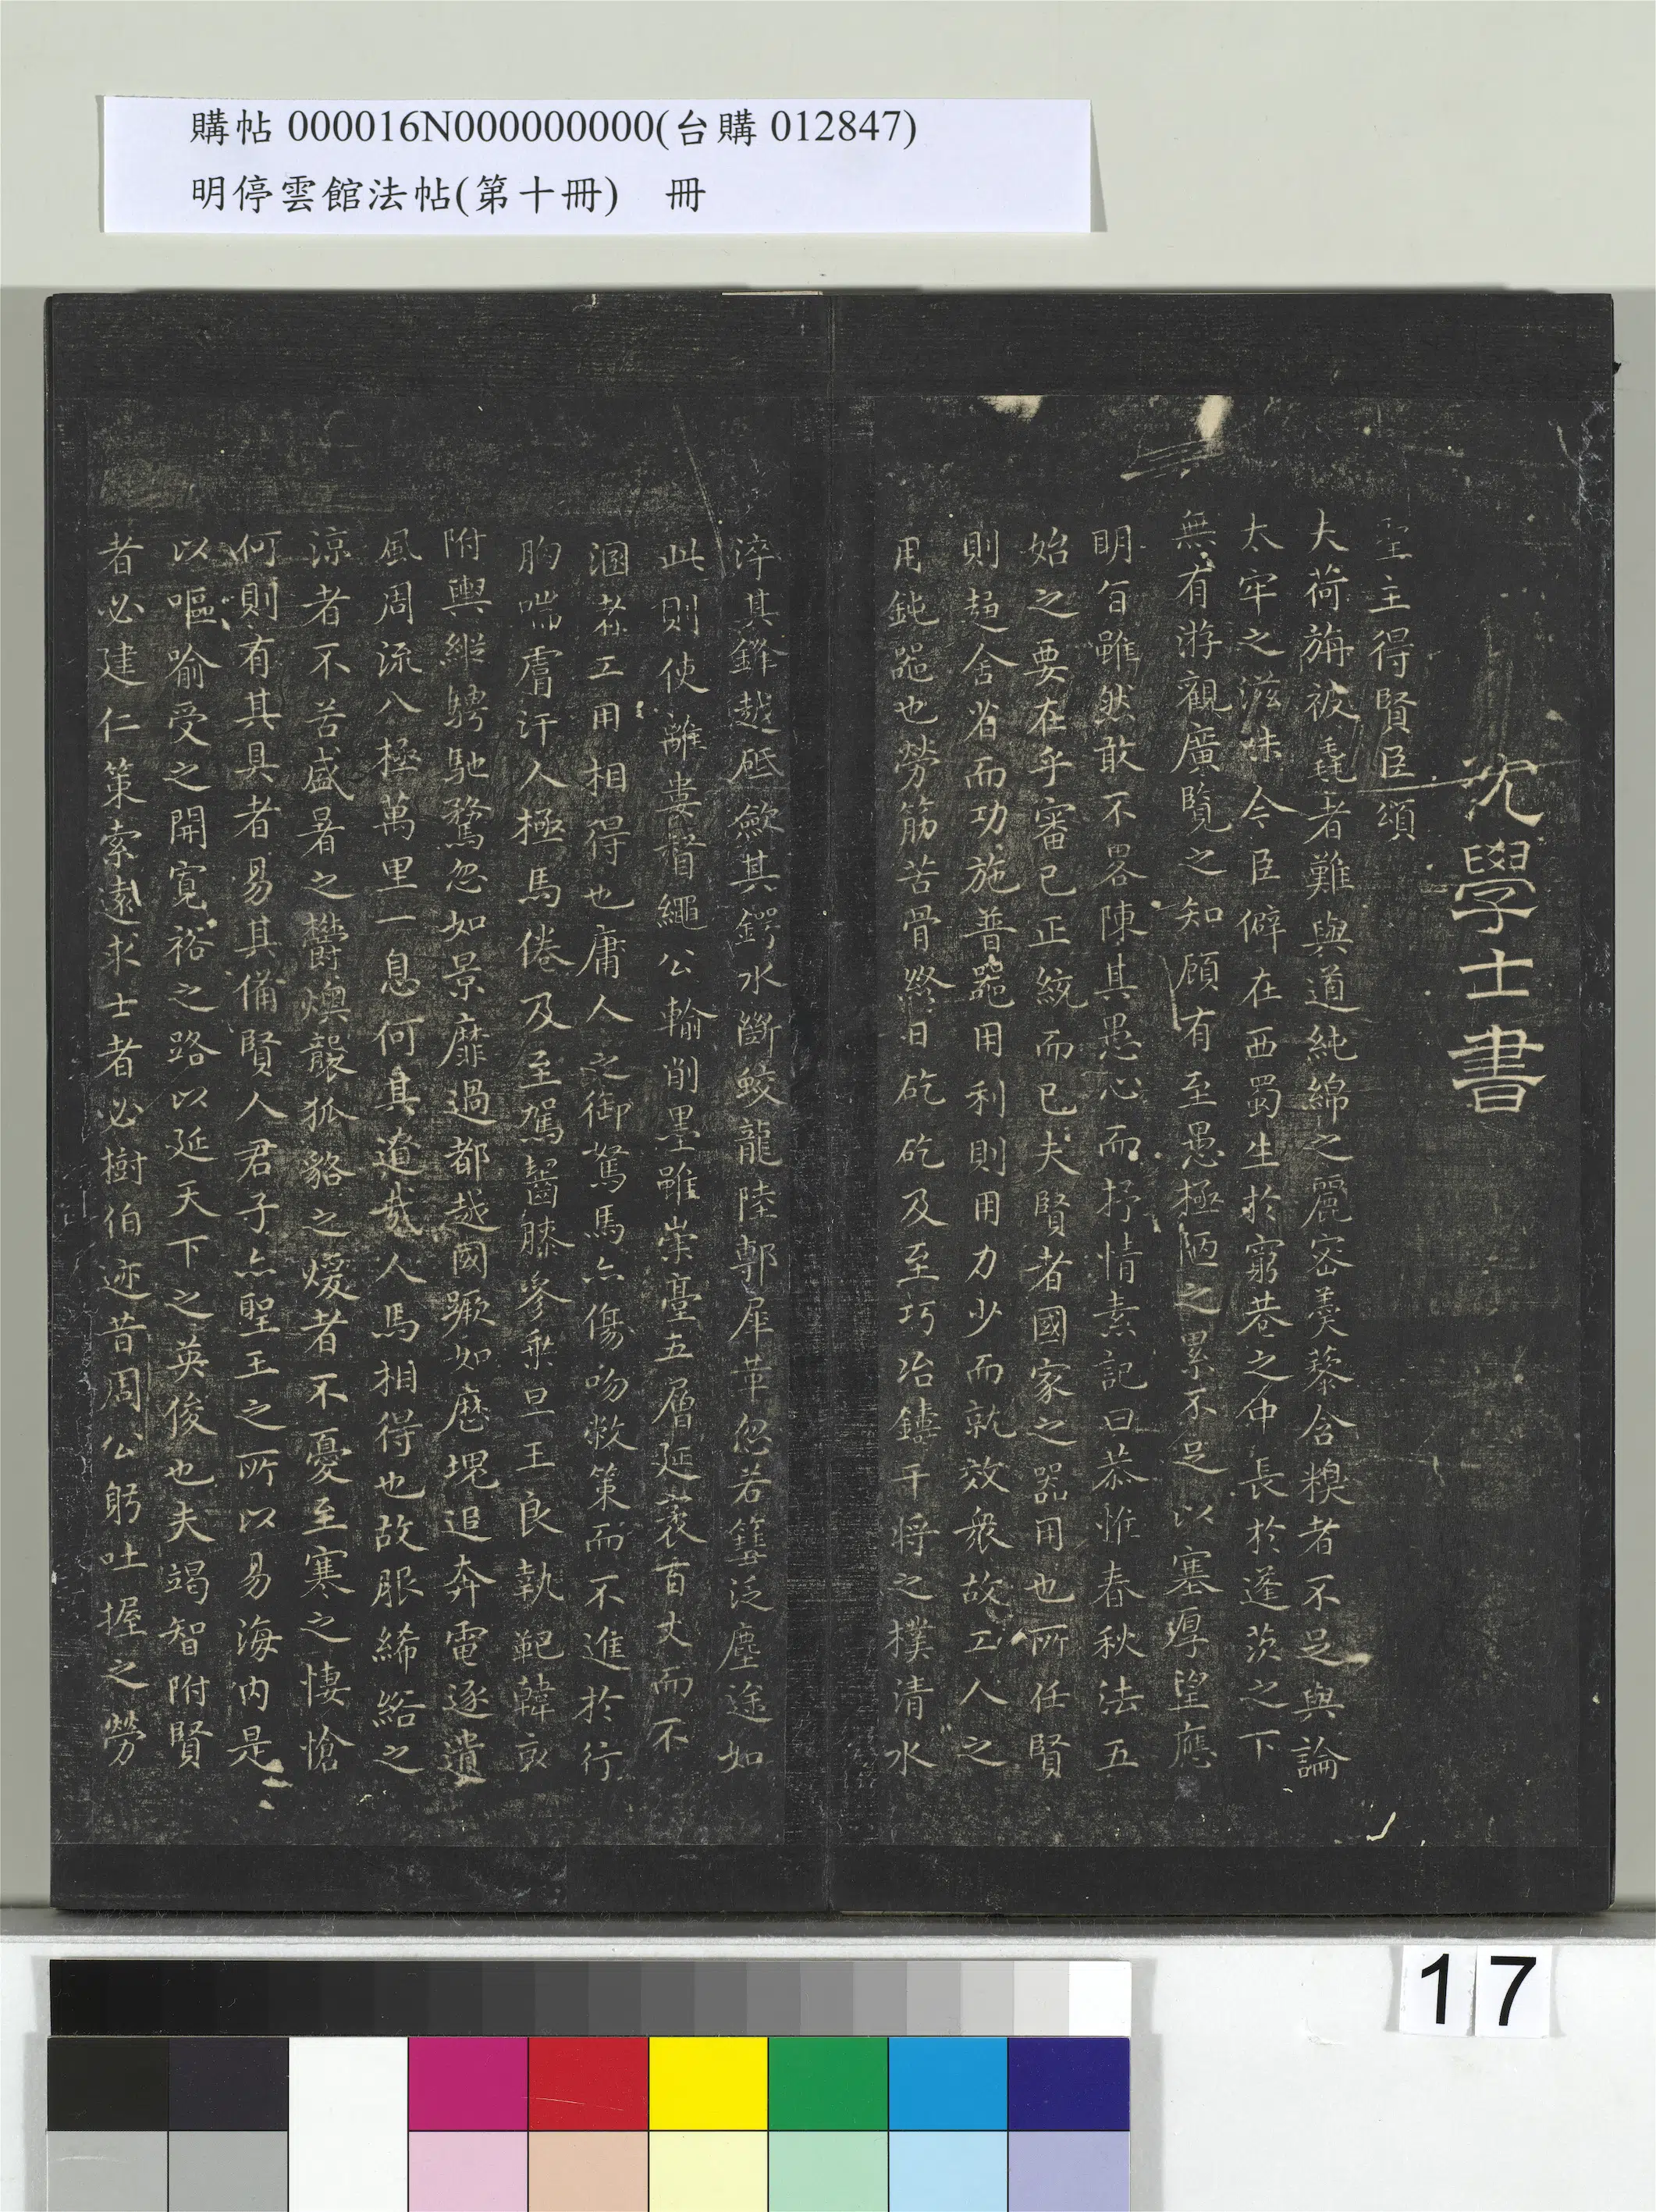 購帖 000016N000000000(台購 012847)
明停雲館法帖(第十冊) 冊
沈學士書
聖主得賢臣頌
夫荷旃被毳者難與道純綿之麗密羹藜含糗者不足與論
太牢之滋味今臣僻在西蜀生於窮巷之中長於蓬茨之下
無有游觀廣覽之知顧有至愚極陋之累不足以塞厚望應
明旨雖然敢不略陳其愚心而抒情素記曰恭惟春秋法五
始之要在乎審己正統而已夫賢者國家之器用也所任賢
則趍舍省而功施普器用利則用力少而就效衆故工人之
用鈍器也勞筋苦骨終日矻矻及至巧冶鑄干將之樸清水
淬其鋒越砥斂其鍔水斷蛟龍陸剸犀革忽若篲泛塵塗如
此則使離婁督繩公輸削墨雖崇臺五層延袤百丈而不
溷者工用相得也庸人之御駑馬亦傷吻敝策而不進於行
胷喘膚汗人極馬倦及至駕齧膝驂乘旦王良執靶韓哀
附輿縱騁馳騖忽如景靡過都越國蹶如歷塊追奔電逐遺
風周流八極萬里一息何其遼哉人馬相得也故服絺綌之
涼者不苦盛暑之鬱燠襲狐貉之煖者不憂至寒之悽愴
何則有其具者易其備賢人君子亦聖王之所以易海內是
以嘔喻受之開寬裕之路以延天下之英俊也夫竭智附賢
者必建仁策索遠求士者必樹伯迹昔周公躬吐握之勞
17